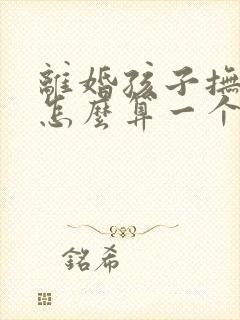 離婚孩子撫
怎麼算一个
銘希